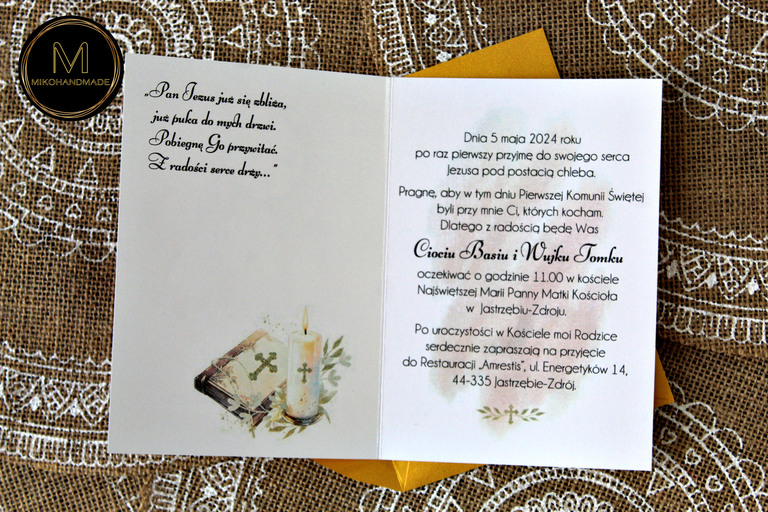 M
MIKOHANDMADE
„Pan Jezus już się zbliża,
już puka do mych drzwi.
Pobiegnę Go przywitać.
Z radości serce drży..."
Dnia 5 maja 2024 roku
po raz pierwszy przyjmę do swojego serca
Jezusa pod postacią chleba.
Pragnę, aby w tym dniu Pierwszej Komunii Świętej
byli przy mnie Ci, których kocham.
Dlatego z radością będę Was
Ciociu Basiu i Wujku Tomku
oczekiwać o godzinie 11.00 w kościele
Najświętszej Marii Panny Matki Kościoła
w Jastrzębiu-Zdroju.
Po uroczystości w Kościele moi Rodzice
serdecznie zapraszają na przyjęcie
do Restauracji „Amrestis", ul. Energetyków 14,
44-335 Jastrzębie-Zdrój.